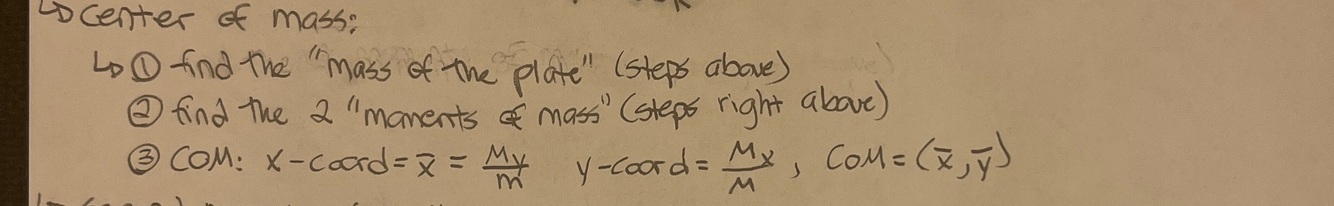 ↳ center of mass:
↳ ① find the "mass of the plate" (steps above)
② find the 2 "moments of mass" (steps right above)
③ COM: x-coord = x̄ = My/m y-coord = Mx/M, COM = (x̄, ȳ)